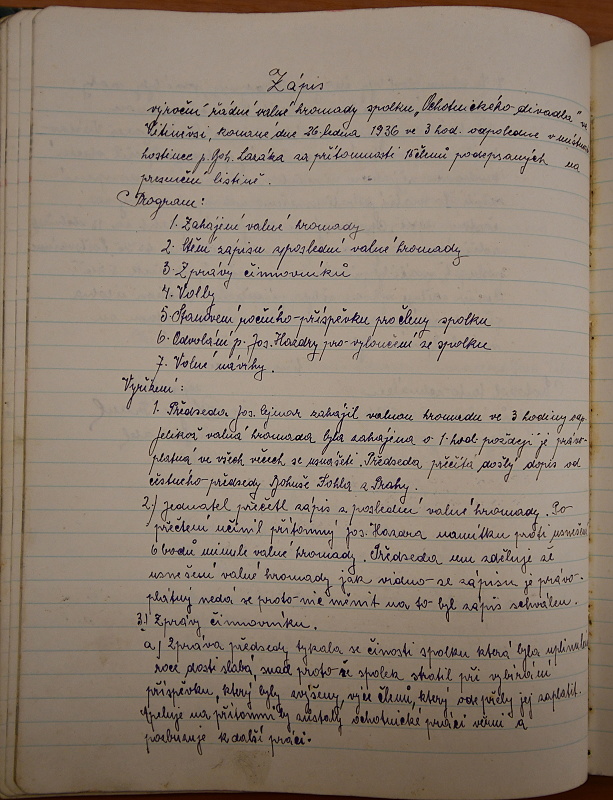 Zápis
výroční řádné valné hromady spolku „Ochotnického divadla" v
Vítiněvsi, konané dne 26. ledna 1936 ve 3 hod. odpoledne v místnosti
hostince p. Boh. Lacáka za přítomnosti 15 členů podepsaných na
presenční listině.
Program:
1. Zahájení valné hromady
2. Čtení zápisu z poslední valné hromady
3. Zprávy činnovníků
4. Volby
5. Stanovení ročního příspěvku pro členy spolku
6. Odvolání p. Jos. Hazdry pro vyloučení ze spolku
7. Volné návrhy.
Vyřízení:
1. Předseda Jos. Cejnar zahájil valnou hromadu ve 3 hodiny odp.
jelikož valná hromada byla zahájena o 1 hod. později je právo-
platná ve všech věcech se usnášeti. Předseda přečítá došlý dopis od
čestného předsedy Bohuše Fohla z Prahy.
2.) jednatel přečetl zápis z poslední valné hromady. Po
přečtení učinil přítomný Jos. Hazdra námitku proti usnešení
6 bodů minulé valné hromady. Předseda mu zděluje že
usnešení valné hromady jak vidno ze zápisu je právo-
platný nedá se proto nic měnit na to byl zápis schválen.
3.) Zprávy činnovníku.
a) Zpráva předsedy tykala se činosti spolku která byla v uplinulém
roce dosti slabá, snad proto že spolek stratil při vybírání
příspěvku, který byly zvýšeny, více členů, který odepřely jej zaplatit.
Apeluje na přítomni by zůstaly ochotnické práci věrni a
pozbuzuje k další práci.